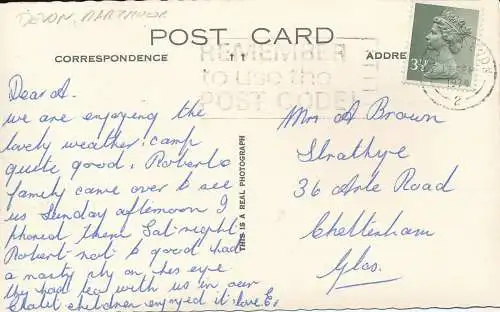 DEVON, DARTMOOR
POST CARD
CORRESPONDENCE
ADDRE
REMEMBER
to use the
POST CODE!
3½P
1974
2
Dear A.
we are enjoying the
lovely weather, camp
quite good. Roberts
family came over to see
us Sunday afternoon I
phoned them Sat-night
Robert not to good had
a nasty sty on his eye
they had tea with us in our
Chalet children enjoyed it. love E.
THIS IS A REAL PHOTOGRAPH
Mrs A Brown
Strathye
36 Arle Road
Cheltenham
Glos.